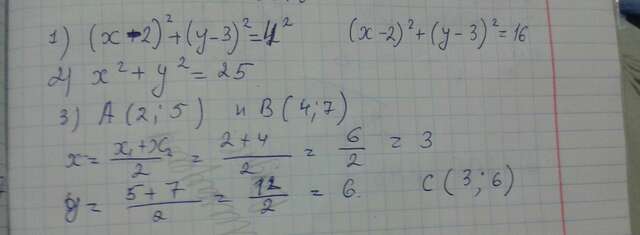 1) (x-2)²+(y-3)²=4² (x-2)²+(y-3)²=16
2) x²+y²=25
3) A(2;5) и B(4;7)
x= x₁+x₂/2 = 2+4/2 = 6/2 = 3
y= 5+7/2 = 12/2 = 6 C(3;6)